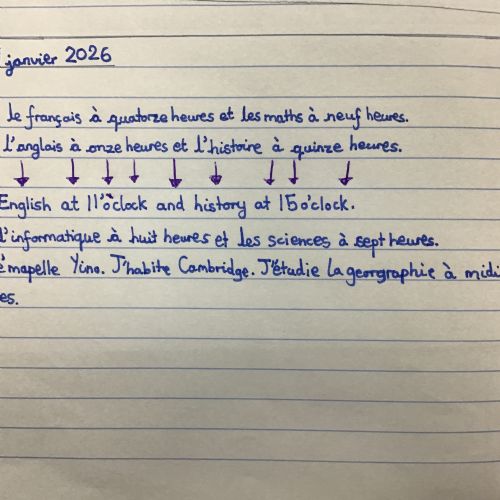 janvier 2026
le français à quatorze heures et les maths à neuf heures.
l'anglais à onze heures et l'histoire à quinze heures.
English at 11 o'clock and history at 15 o'clock.
l'informatique à huit heures et les sciences à sept heures.
m'apelle Yino. J'habite Cambridge. J'étudie la georgraphie à midi
es.